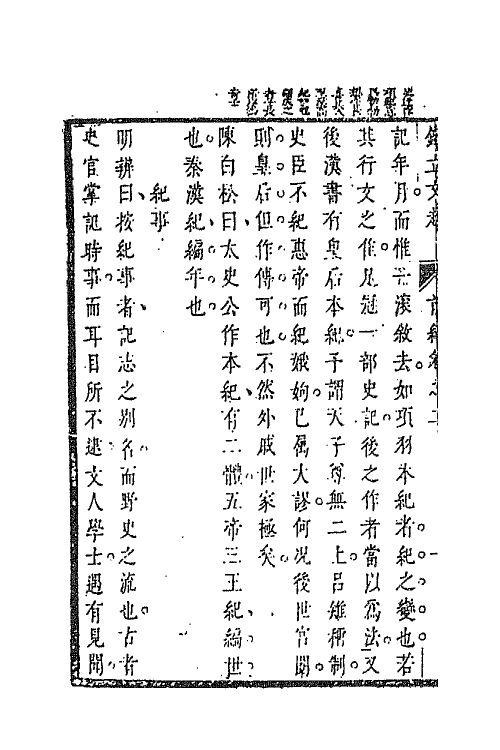 記年月而惟滾敘去如項羽本紀者紀之變也若
其行文之佳足冠一部史記後之作者當以爲法又
後漢書有皇后本紀予謂天子尊無二上呂雉稱制
史臣不紀惠帝而紀娥姁已屬大謬何況後世宮闈
則皇后但作傳可也不然外戚世家極矣
陳白松曰太史公作本紀有二體五帝三王紀編世
也秦漢紀編年也
紀事
明辨曰按紀事者記志之別名而野史之流也古者
史官掌記時事而耳目所不逮文人學士遇有見聞